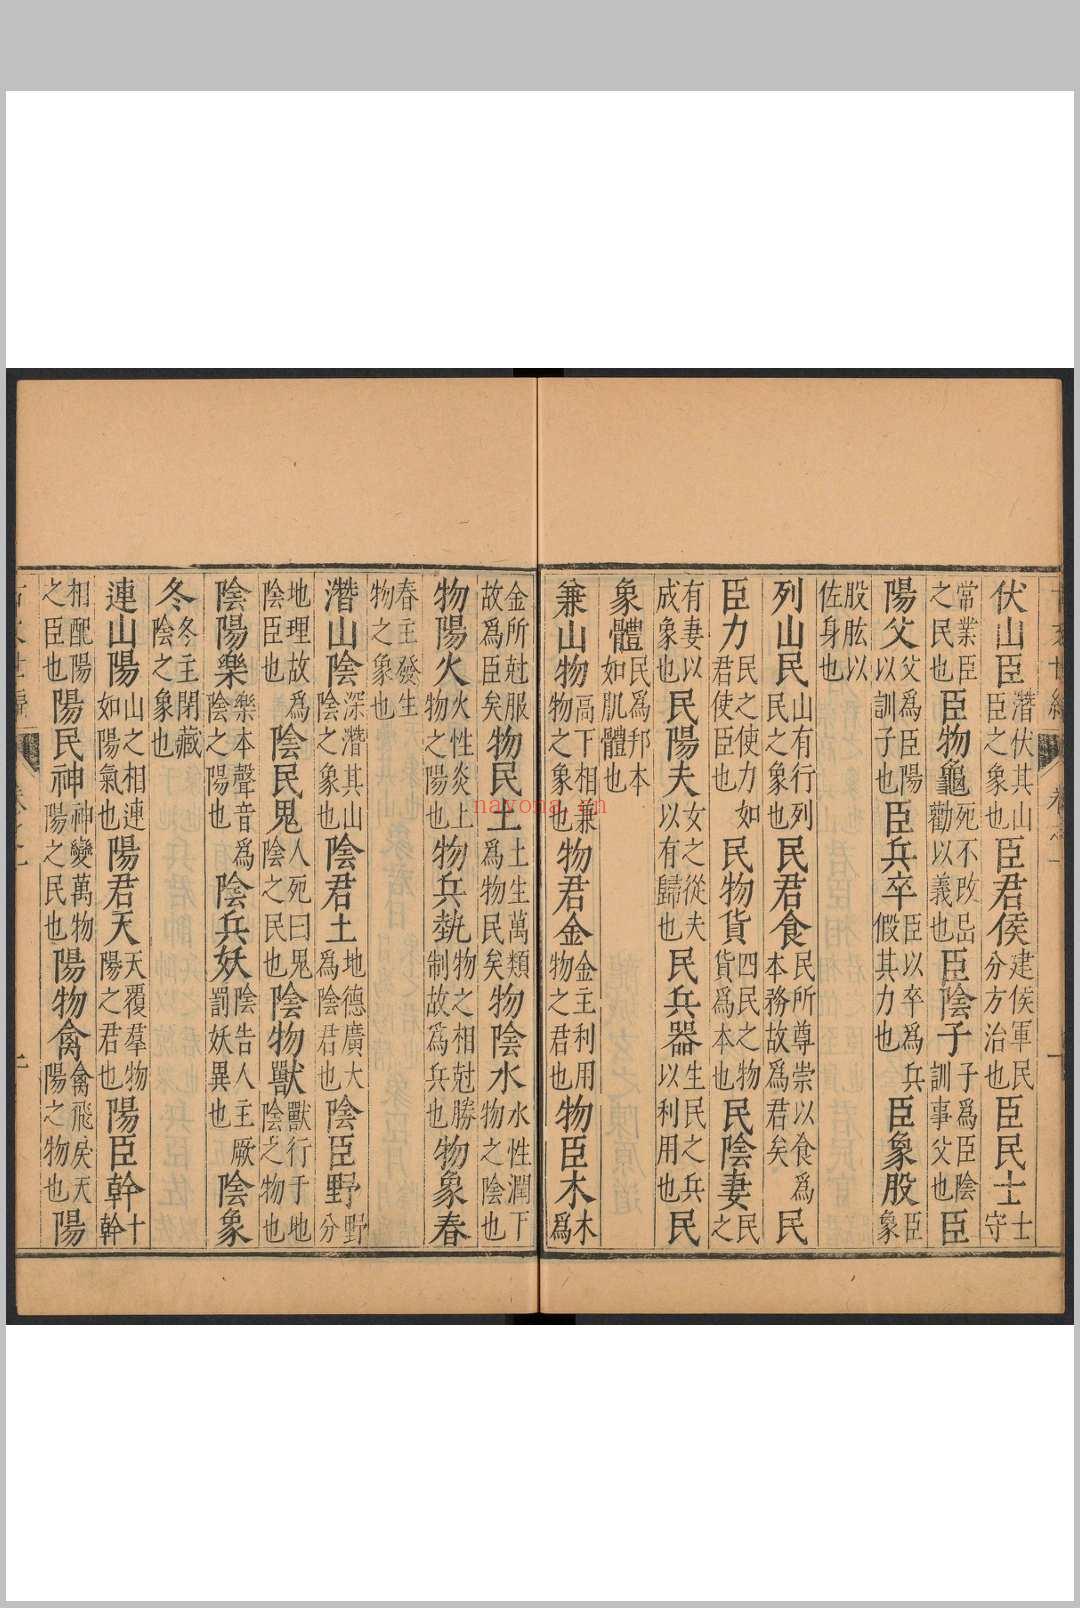 伏山臣潛伏其山臣之象也臣君侯建侯軍民分方治也臣民士士守
常業臣之民也臣物龜死不改岀勸以義也臣陰子子爲臣陰訓事父也臣
陽父父爲臣陽以訓子也臣兵卒臣以卒爲兵假其力也臣象股臣象
股肱以佐身也
列山民山有行列民之象也民君食民所尊崇以食爲本務故爲君矣民
臣力民之使力如君使臣也民物貨四民之物貨爲本也民陰妻民之
有妻以成象也民陽夫女之從夫以有歸也民兵器生民之兵以利用也民
象體民爲邦本如肌體也
兼山物高下相兼物之象也物君金金主利用物之君也物臣木木爲
金所尅服故爲臣矣物民土土生萬類爲物民矣物陰水水性潤下物之陰也
物陽火火性炎上物之陽也物兵埶物之相尅勝制故爲兵也物象春
春主發生物之象也
潛山陰深潛其山陰之象也陰君土地德廣大爲陰君也陰臣野野分
地理故爲陰臣也陰民鬼人死曰鬼陰之民也陰物獸獸行于地陰之物也
陰陽樂樂本聲音爲陰之陽也陰兵妖陰告人主厥罰妖異也陰象
冬冬主閉藏陰之象也
連山陽山之相連如陽氣也陽君天天覆羣物陽之君也陽臣幹十幹
相配陽之臣也陽民神神變萬物陽之民也陽物禽禽飛戾天陽之物也陽
nayona.cn